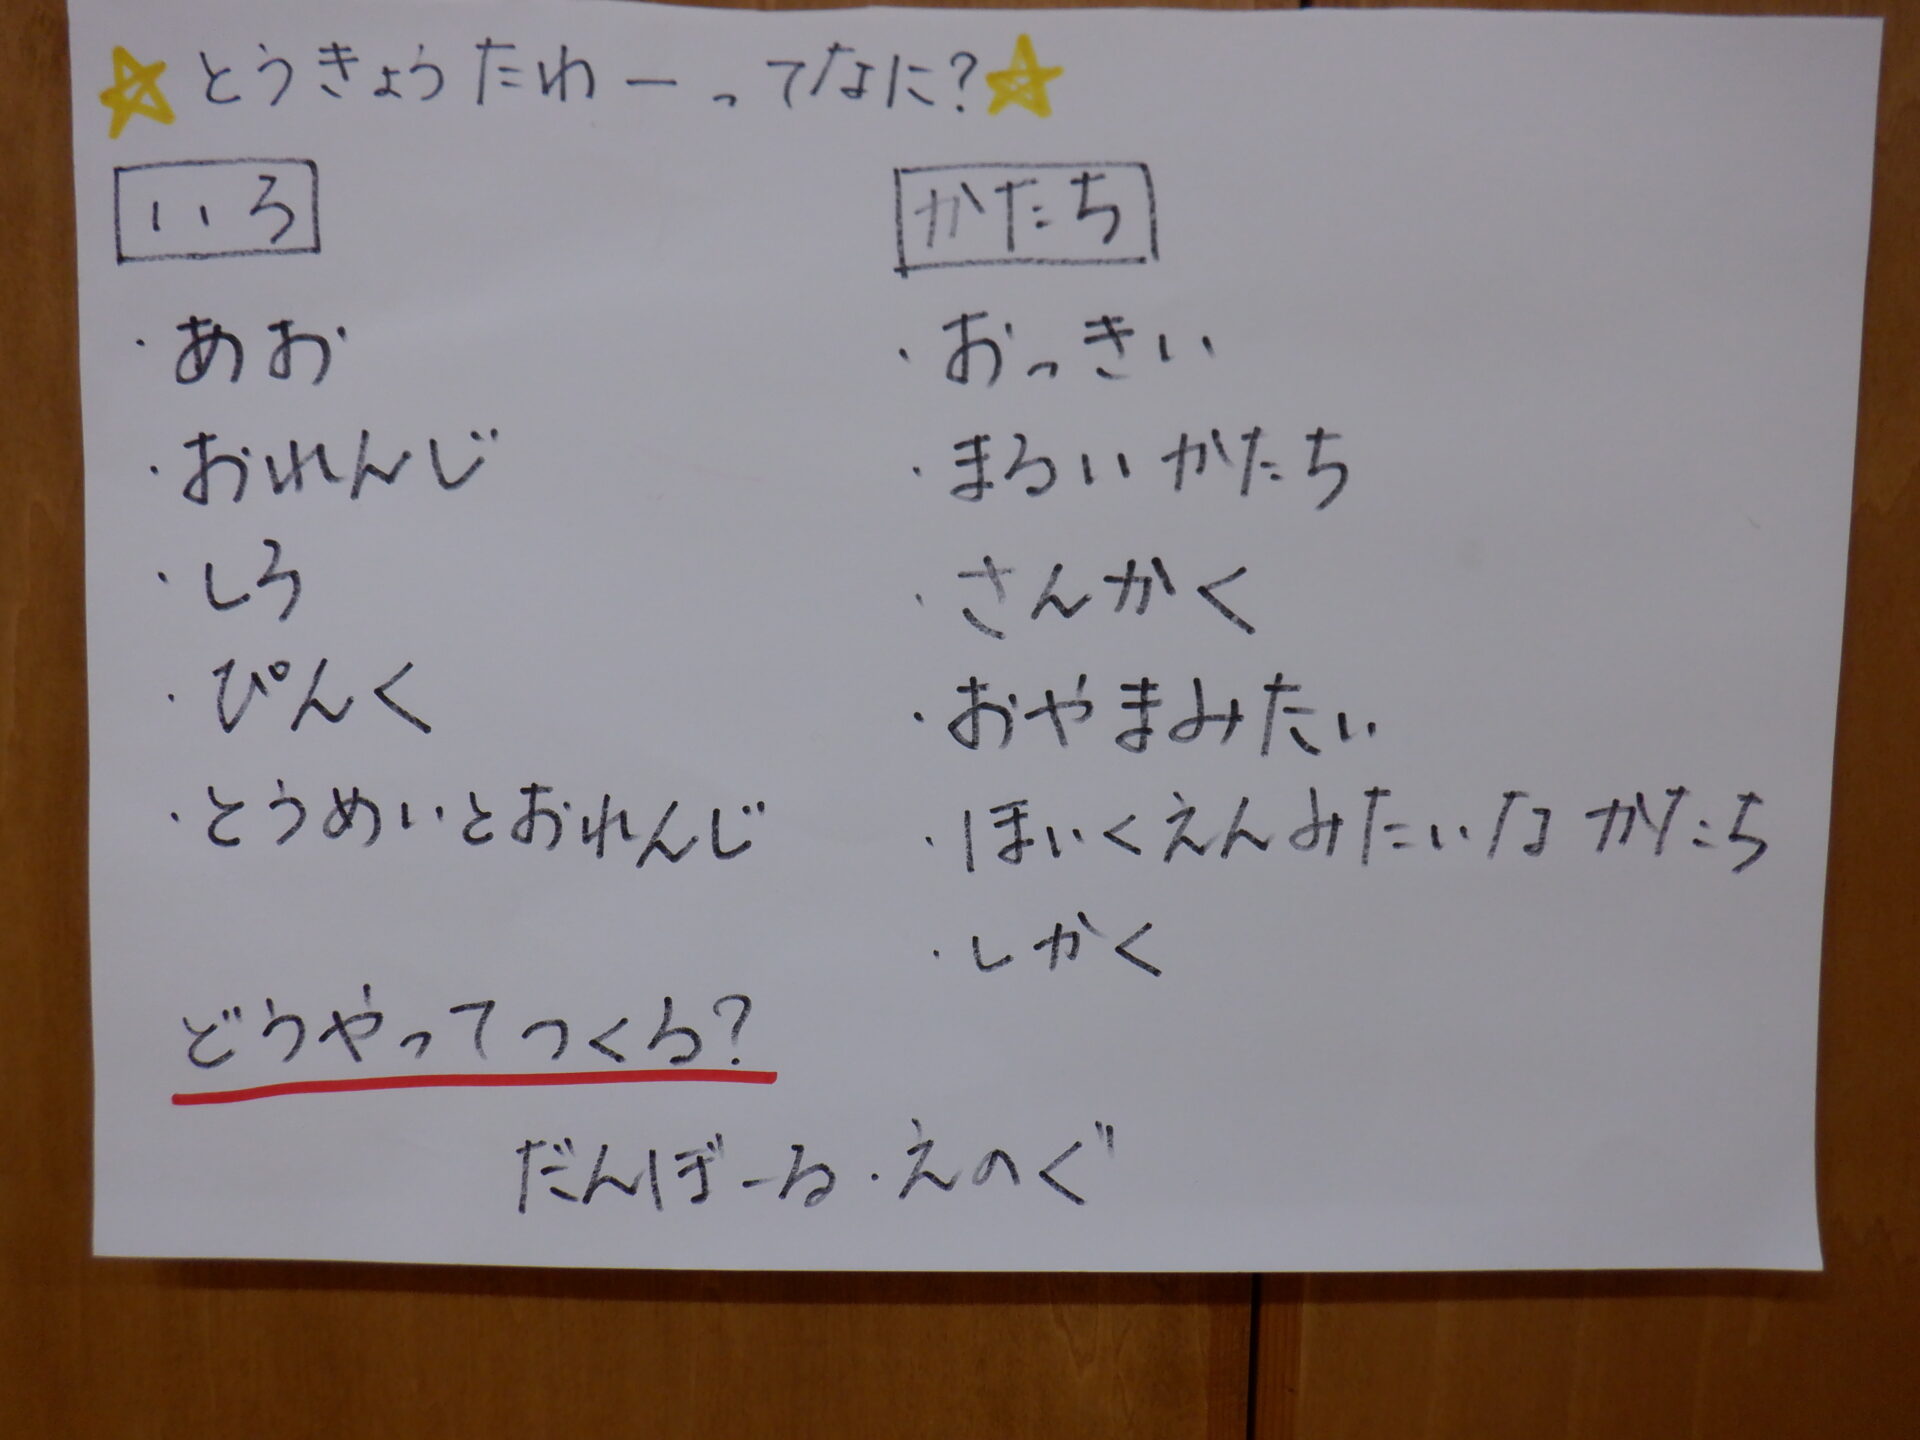 とうきょうたわーってなに?
いろ
・あお
・おれんじ
・しろ
・ぴんく
・とうめいとおれんじ
かたち
・おっきい
・まるいかたち
・さんかく
・おやまみたい
・ほいくえんみたいなかたち
・しかく
どうやってつくる?
だんぼーる・えのぐ